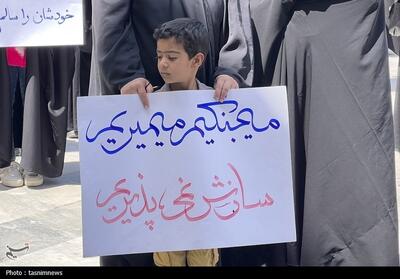 خودشان را سالم
میجنگیم میمیریم
سازش نمی پذیریم
Photo : tasnimnews